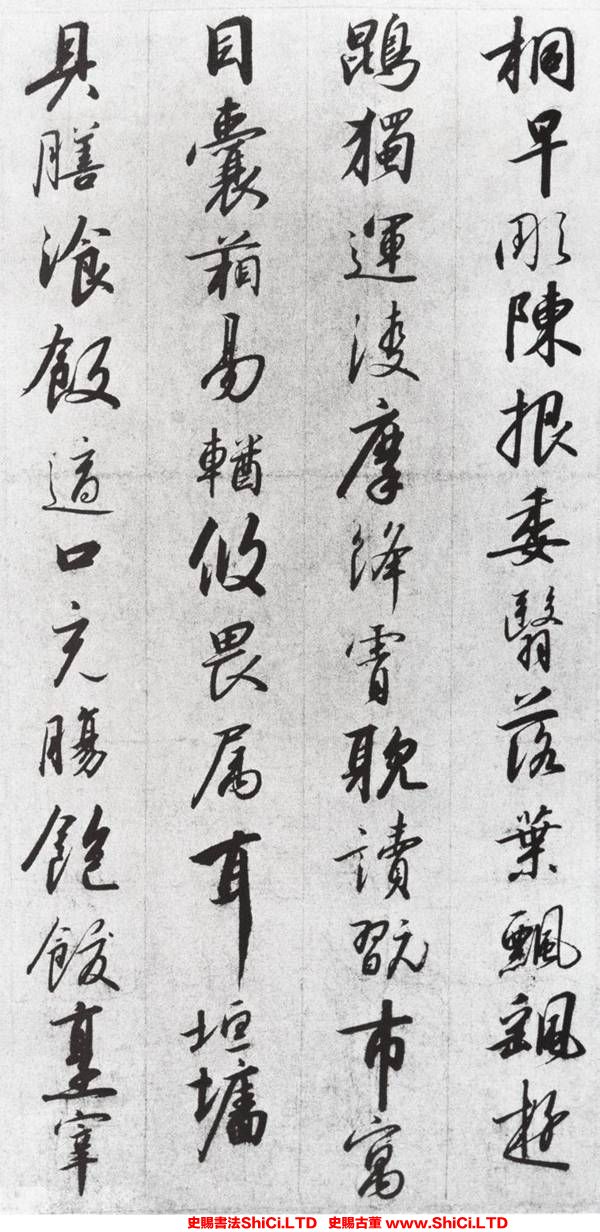 桐早彫陳根委翳落葉飄颻遊
鵾獨運凌摩絳霄耽讀翫市寓
目囊葙易輶攸畏属耳垣墻
具膳飡飯適口充腸飽飫享宰
史賜書法ShiCi.LTD 史賜古董 www.ShiCi.LTD